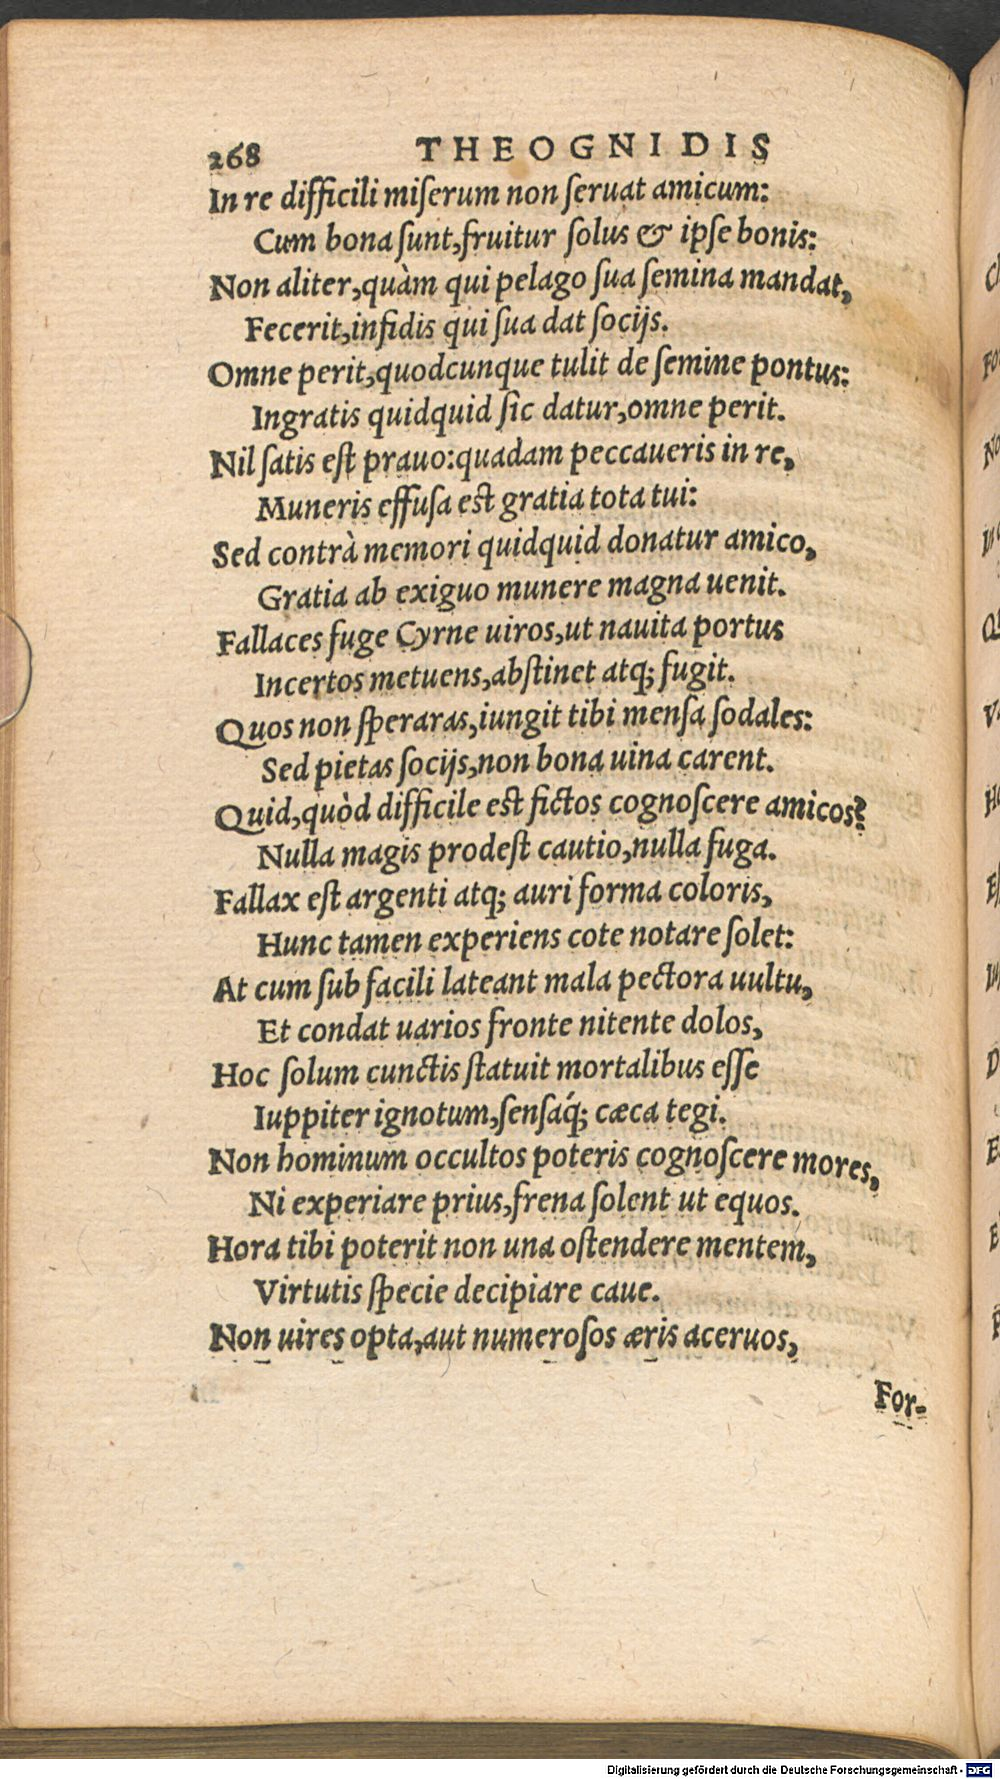 268 THEOGNIDIS
In re difficili miſerum non ſeruat amicum:
Cum bona ſunt, fruitur ſolus & ipſe bonis:
Non aliter, quàm qui pelago ſua ſemina mandat,
Fecerit, infidis qui ſua dat ſocijs.
Omne perit, quodcunque tulit de ſemine pontus:
Ingratis quidquid ſic datur, omne perit.
Nil ſatis eſt prauo: quadam peccaueris in re,
Muneris effuſa eſt gratia tota tui:
Sed contrà memori quidquid donatur amico,
Gratia ab exiguo munere magna uenit.
Fallaces fuge Cyrne uiros, ut nauita portus
Incertos metuens, abſtinet atq; fugit.
Quos non ſperaras, iungit tibi menſa ſodales:
Sed pietas ſocijs, non bona uina carent.
Quid, quòd difficile eſt fictos cognoſcere amicos?
Nulla magis prodeſt cautio, nulla fuga.
Fallax eſt argenti atq; auri forma coloris,
Hunc tamen experiens cote notare ſolet:
At cum ſub facili lateant mala pectora uultu,
Et condat uarios fronte nitente dolos,
Hoc ſolum cunctis ſtatuit mortalibus eſſe
Iuppiter ignotum, ſenſaq́; cæca tegi.
Non hominum occultos poteris cognoſcere mores,
Ni experiare prius, frena ſolent ut equos.
Hora tibi poterit non una oſtendere mentem,
Virtutis ſpecie decipiare caue.
Non uires opta, aut numeroſos æris aceruos,
For-
Digitalisierung gefördert durch die Deutsche Forschungsgemeinschaft - DFG